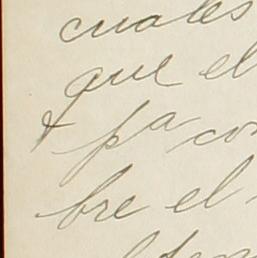 cuales
que el
pa co
bre el